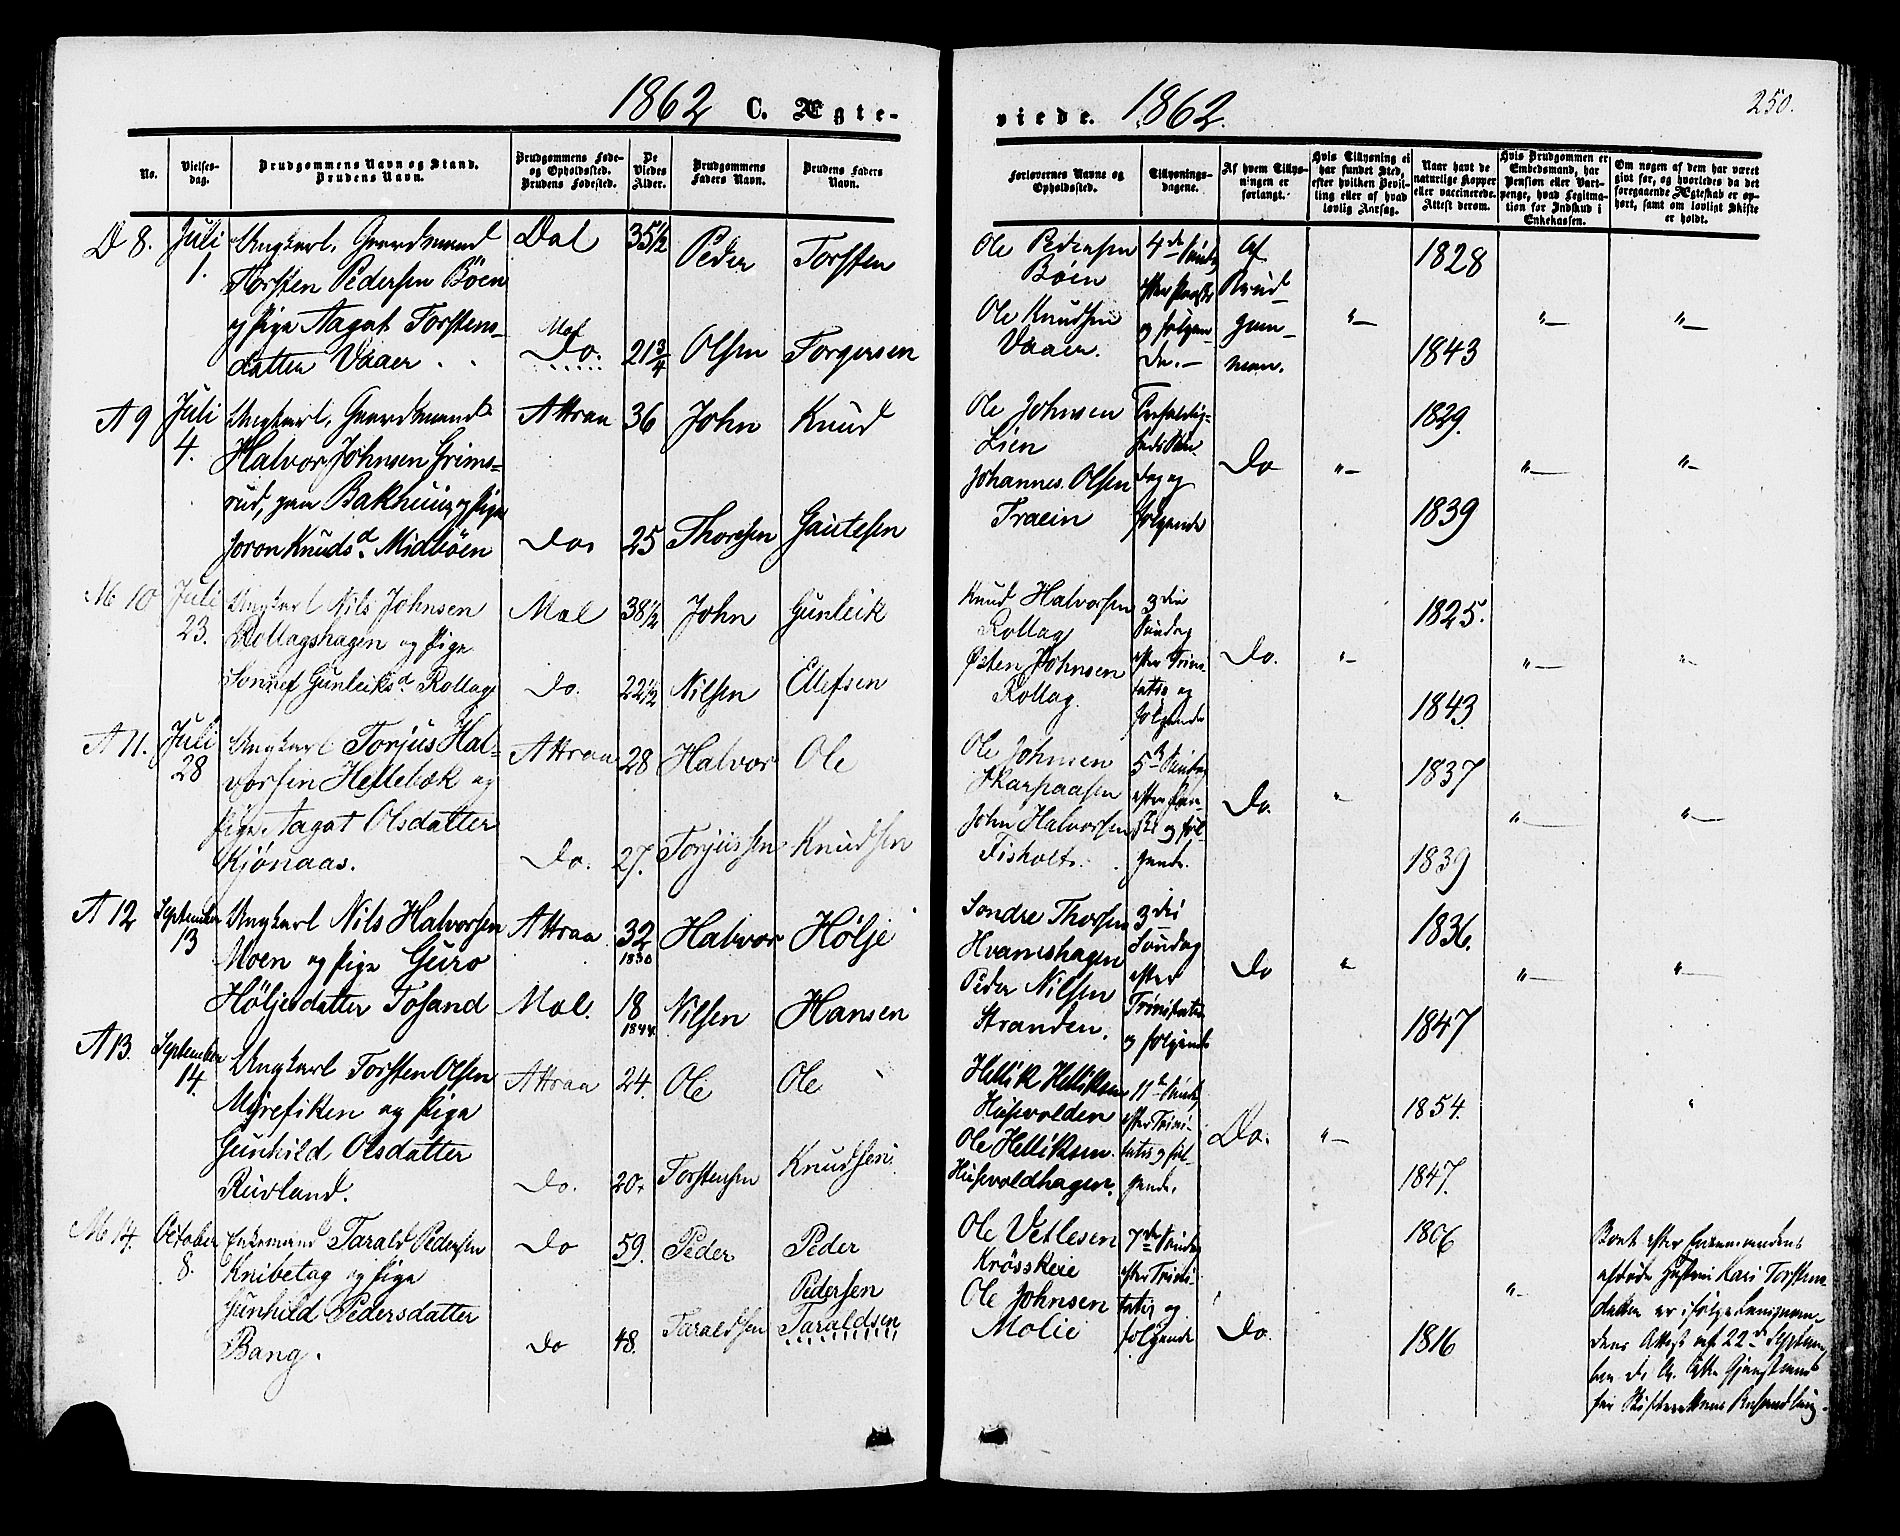 1862 C. Ægte-
viede. 1862.
250.
No.
Vielses-
dag.
Brudgommens Navn og Stand.
Brudens Navn.
Brudgommens Føde-
og Opholdssted.
Brudens Fødested.
De
Viedes
Alder.
Brudgommens
Faders Navn.
Brudens Faders
Navn.
Forlovernes Navne og
Opholdssted.
Tillysnings-
dagene.
Af hvem Tillys-
ningen er
forlangt.
Hvis Tillysning ei
har fundet Sted,
efter hvilken Bevil-
ling eller af hvad
lovlig Aarsag.
Naar havt de
naturlige Kopper
eller vaccinerede.
Attest derom.
Hvis Brudgommen er
Embedsmand, har
Pension eller Vart-
penge, hvad Legitima-
tion for Indskud i
Enkekassen.
Om nogen af dem har været
gift før, og hvorledes da det
foregaaende Ægteskab er op-
hørt, samt om lovligt Skifte
er holdt.
D 8.
Juli
1.
Ungkarl, Gaardmand
Torsten Pedersen Böen
og Pige Aagat Torstens-
datter Vaaer
Dal
Mol
Do.
35 1/2
21 3/4
Peder
Olsen
Torsten
Torgersen
Ole Pedersen
Böen
Ole Knudsen
Vaaer.
4de Søndag
efter Paaske
og følgen-
de.
Af
Brud-
gom-
men.
"
1828
1843
"
"
A 9
Juli
4.
Ungkarl, Gaardmand
Halvor Johnsen Grims-
rud, paa Bakhuus og Pige
Joron Knudsd. Midböen
Attraa
Do.
36
25
John
Thoresen
Knud
Gautesen
Ole Johnsen
Lien
Johannes Olsen
Traein
Trefoldig-
heds Søn-
dag og
følgende
Do
"
1829.
1839
"
"
M 10
Juli
23.
Ungkarl Nils Johnsen
Rollagshagen og Pige
Sonnef Gunleiksd. Rollag
Mol
Do.
38 1/2
22 1/2
John
Nilsen
Gunleik
Ellefsen
Knud Halvorsen
Rollag
Østen Johnsen
Rollag.
3die
Søndag
efter Trini-
tatis og
følgende
Do.
"
1825.
1843
"
"
A 11.
Juli
28
Ungkarl Torjus Hal-
vorsen Hellebæk og
Pige Aagat Olsdatter
Kjönaas.
Attraa
Do.
28
27.
Halvor
Torjussen
Ole
Knudsen
Ole Johnsen
Skarpaasen
John Halvorsen
Fisholt
5te Søndag
efter Paa-
ske og føl-
gende.
Do.
"
1837
1839
"
"
A 12
September
13
Ungkarl Nils Halvorsen
Moen og Pige Guro
Höljesdatter Tosand
Attraa
Mol.
32
1830
18
1844.
Halvor
Nilsen
Hölje
Hansen
Sondre Thorsen
Hvamshagen
Peder Nilsen
Stranden.
3die
Søndag
efter
Trinitatis
og følgende
Do
"
1836.
1847
"
"
A 13.
September
14.
Ungkarl Torsten Olsen
Myrefiken og Pige
Gunhild Olsdatter
Ruvland.
Attraa
Do.
24.
20.
Ole
Torstensen
Ole
Knudsen.
Hellik Helliksen
Husevolden
Ole Helliksen.
Husevoldhagen.
11te Søndag
efter Trini-
tatis og føl-
gende.
Do.
"
1854.
1847.
"
M 14.
October
8.
Enkemand Tarald Pedersen
Knibetag og Pige
Gunhild Pedersdatter
Bang.
Do
Do
59.
48.
Peder
Taraldsen
Peder
Pedersen
Taraldsen
Ole Vetlesen
Krösskeie
Ole Johnsen
Molie
7de Søndag
efter Trini-
tatis og
følgende
Do.
1806
1816
"
Boet efter Enkemandens
afdøde Hustru Kari Torstens-
datter er ifølge Lensman-
dens Attest af 22de Septem-
ber d. A. Gjenstand
for Skifterettens Behandling.